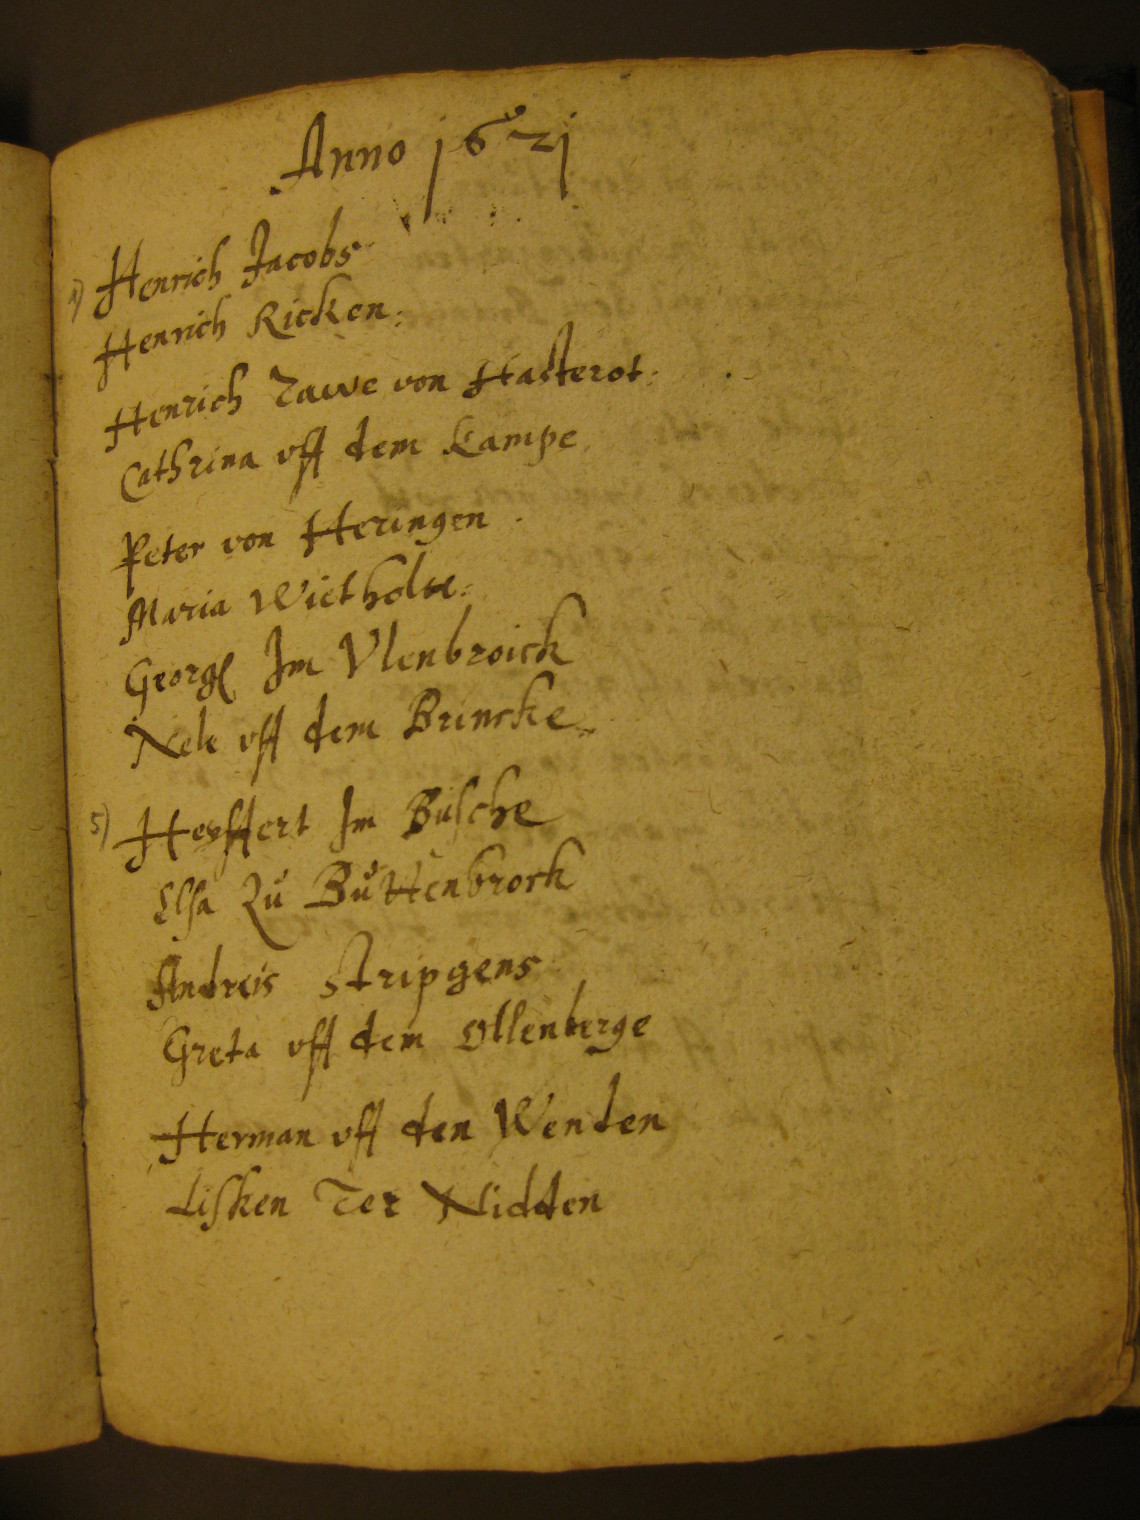 Anno 1621
1) Henrich Jacobs
Henrich Ricken.
Henrich Tawe von Hasterot.
Cathrina uff dem Kampe
Peter von Heringen
Maria Wietholtt.
Georg Im Vlenbroick
Nele uff dem Brincke
5) Heyffert Im Busche
Elsa Zu Buttenbrock
Andreis Stripgens
Greta uff dem Ollenberge
Herman uff den Wenden
Lisken Ter Nidden